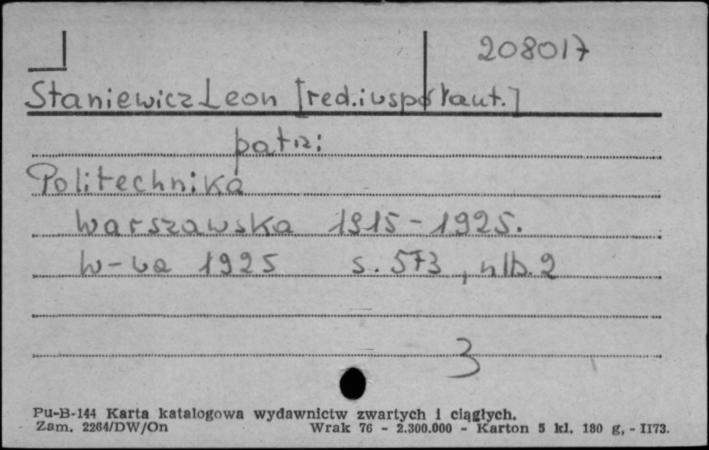 208017
Staniewicz Leon [red.i współaut.]
patrz:
Politechnika
Warszawska 1915-1925.
W-wa 1925 s. 573, nlb. 2
3
Pu-B-144 Karta katalogowa wydawnictw zwartych i ciągłych.
Zam. 2264/DW/On Wrak 76 - 2.300.000 - Karton 5 kl. 180 g. - II73.